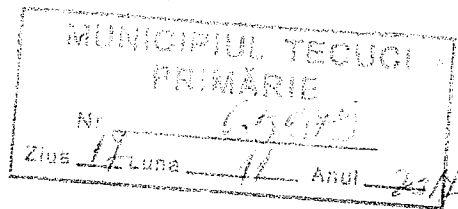 MUNICIPIUL TECUCI
PRIMĂRIE
Nr.
Ziua 17 Luna 11 Anul